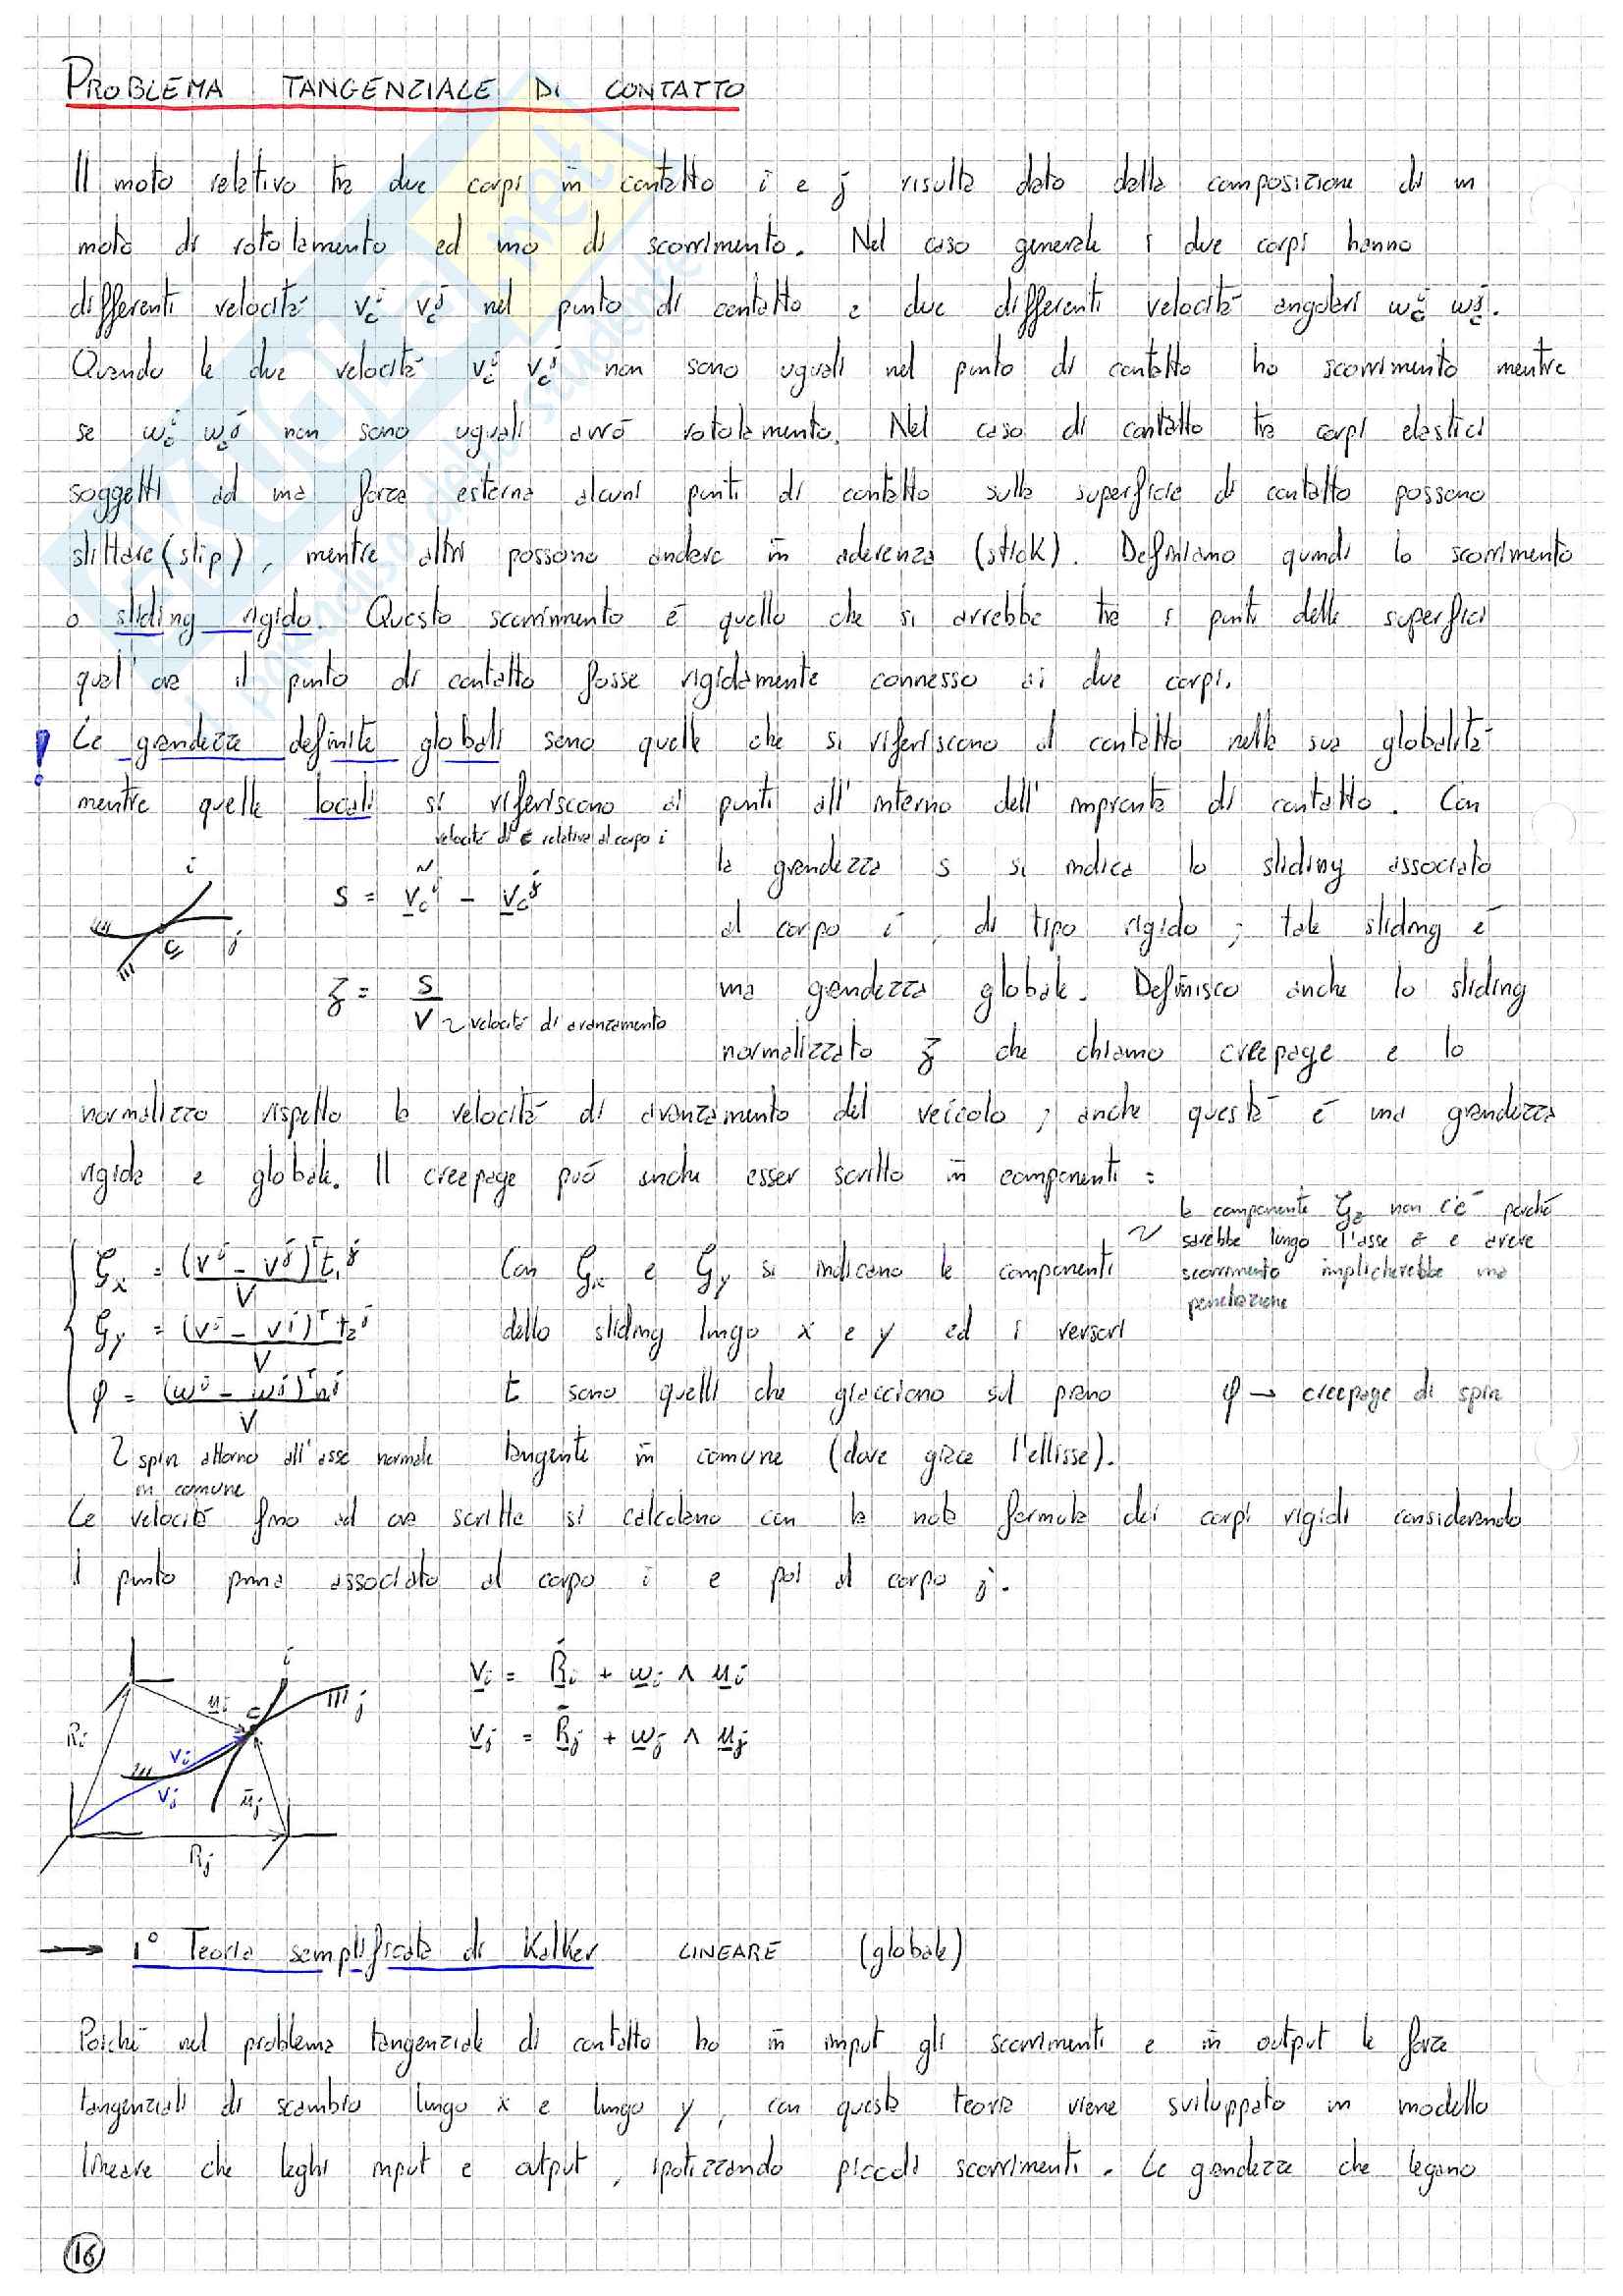 PROBLEMA TANGENZIALE DI CONTATTO
Il moto relativo tra due corpi in contatto i e j risulta dato dalla composizione di un
moto di rotolamento ed uno di scorrimento. Nel caso generale i due corpi hanno
differenti velocità v_c^i v_c^j nel punto di contatto e due differenti velocità angolari ω_c^i ω_c^j.
Quando le due velocità v_c^i v_c^j non sono uguali nel punto di contatto ho scorrimento mentre
se ω_c^i ω_c^j non sono uguali avrò rotolamento. Nel caso di contatto tra corpi elastici
soggetti ad una forza esterna alcuni punti di contatto sulla superficie di contatto possono
slittare (slip), mentre altri possono andare in aderenza (stick). Definiamo quindi lo scorrimento
o sliding rigido. Questo scorrimento è quello che si avrebbe tra i punti delle superfici
qual'ora il punto di contatto fosse rigidamente connesso ai due corpi.
! Le grandezze definite globali sono quelle che si riferiscono al contatto nella sua globalità
mentre quelle locali si riferiscono ai punti all'interno dell'impronta di contatto. Con
velocità di C relativa al corpo i
i
j
C
S = v_c^i - v_c^j
la grandezza s si indica lo sliding associato
al corpo i, di tipo rigido; tale sliding è
ξ = S / V ~ velocità di avanzamento
una grandezza globale. Definisco anche lo sliding
normalizzato ξ che chiamo creepage e lo
normalizzo rispetto la velocità di avanzamento del veicolo; anche questa è una grandezza
rigida e globale. Il creepage può anche esser scritto in componenti:
la componente ξz non c'è perché
sarebbe lungo l'asse z e avere
scorrimento implicherebbe una
penetrazione
ξx = (v^i - v^j)^T t_1^j / V
Con ξx e ξy si indicano le componenti
ξy = (v^i - v^j)^T t_2^j / V
dello sliding lungo x e y ed i versori
φ = (ω^i - ω^j)^T n^j / V
t sono quelli che giacciono sul piano
φ → creepage di spin
spin attorno all'asse normale
in comune
tangente in comune (dove giace l'ellisse).
Le velocità fino ad ora scritte si calcolano con la nota formula dei corpi rigidi considerando
il punto prima associato al corpo i e poi al corpo j.
v_i = Ṙ_i + ω_i ∧ u_i
v_j = Ṙ_j + ω_j ∧ u_j
i
u_i
C
j
R_i
v_i
v_j
u_j
R_j
→ 1° Teoria semplificata di Kalker LINEARE (globale)
Poiché nel problema tangenziale di contatto ho in imput gli scorrimenti e in output le forze
tangenziali di scambio lungo x e lungo y, con questa teoria viene sviluppato un modello
lineare che leghi input e output, ipotizzando piccoli scorrimenti. Le grandezze che legano
16